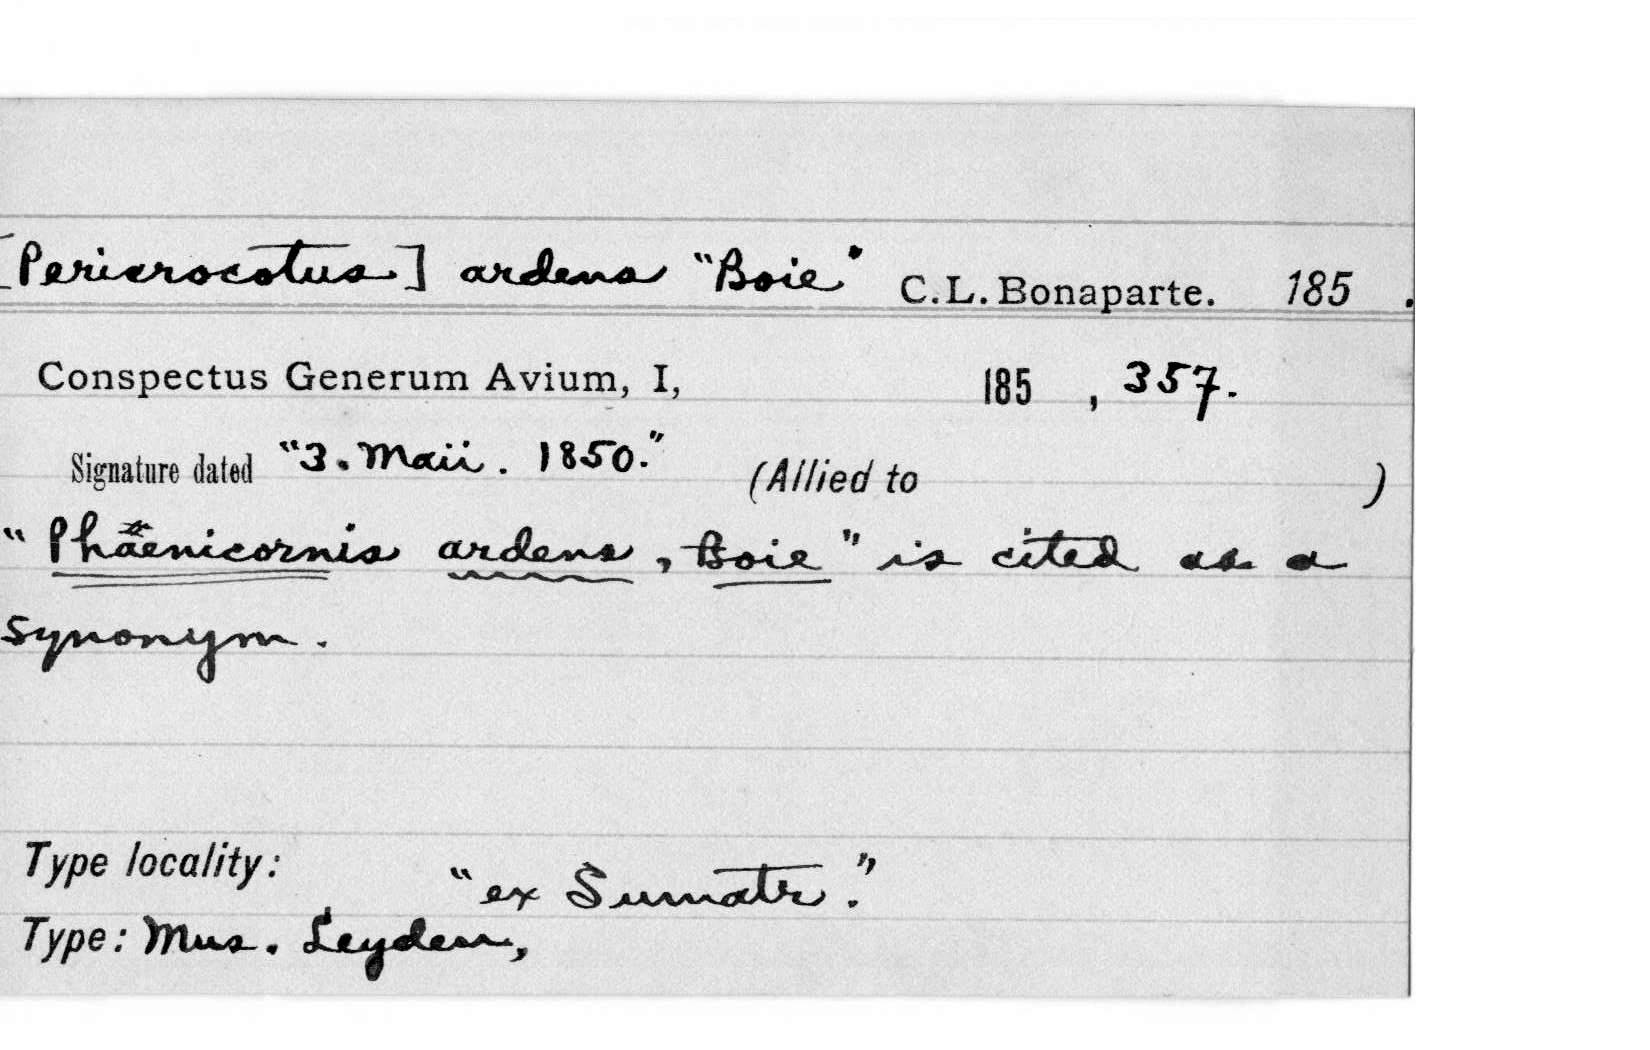 [Pericrocotus] ardens "Boie" C.L. Bonaparte. 185 .
Conspectus Generum Avium, I, 185 , 357.
Signature dated "3. Maii. 1850." (Allied to )
"Phaenicornis ardens, Boie" is cited as a
synonym.
Type locality: "ex Sumatr."
Type: Mus. Leyden,